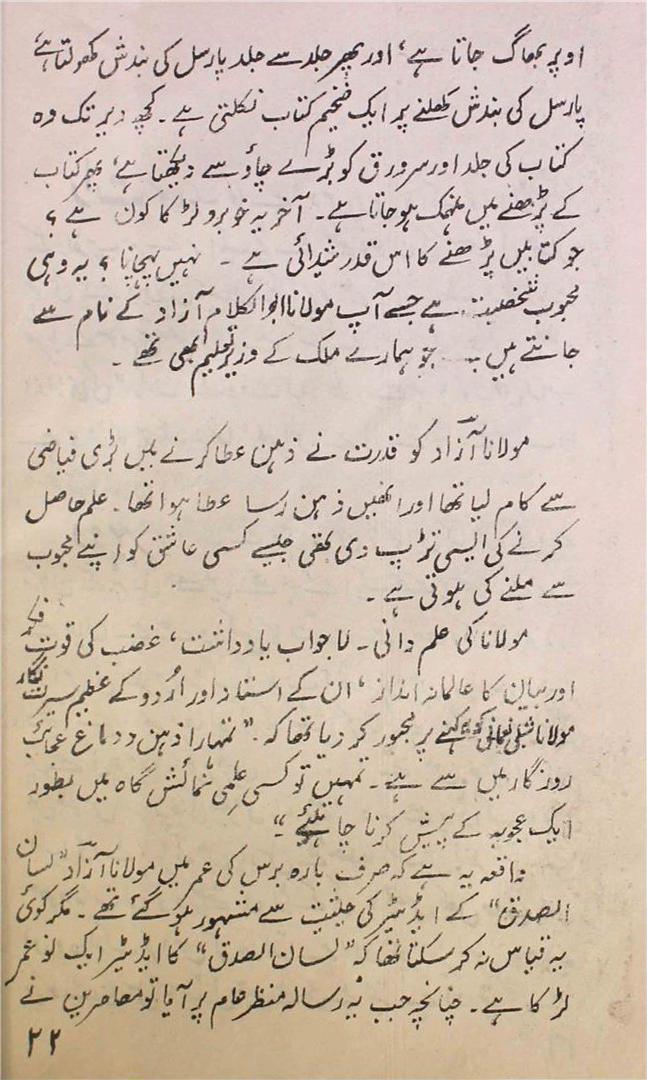 اوپر بھاگ جاتا ہے، اور پھر جلد سے جلد پارسل کی بندش کھولتا ہے
پارسل کی بندش کھلنے پر ایک ضخیم کتاب نکلتی ہے۔ کچھ دیر تک وہ
کتاب کی جلد اور سرورق کو بڑے چاؤ سے دیکھتا ہے، پھر کتاب
کے پڑھنے میں منہمک ہو جاتا ہے۔ آخر یہ خوبرو لڑکا کون ہے؟
جو کتابیں پڑھنے کا اس قدر شیدائی ہے ۔ نہیں پہچانا؟ یہ وہی
محبوب شخصیت ہے جسے آپ مولانا ابوالکلام آزاد کے نام سے
جانتے ہیں ۔ جو ہمارے ملک کے وزیر تعلیم بھی تھے ۔
مولانا آزاد کو قدرت نے ذہن عطا کرنے میں بڑی فیاضی
سے کام لیا تھا اور انھیں ذہن رسا عطا ہوا تھا۔ علم حاصل
کرنے کی ایسی تڑپ دی تھی جیسے کسی عاشق کو اپنے محبوب
سے ملنے کی ہوتی ہے ۔
مولانا کی علم دانی ۔ لاجواب یادداشت، غضب کی قوت فکر
اور بیان کا عالمانہ انداز، ان کے استاد اور اُردو کے عظیم سیرت نگار
مولانا شبلی نعمانی کو یہ کہنے پر مجبور کر دیا تھا کہ ۔"تمہارا ذہن و دماغ عجائب
روزگار میں سے ہے ۔ تمہیں تو کسی علمی نمائش گاہ میں بطور
ایک عجوبہ کے پیش کرنا چاہئے ۔"
واقعہ یہ ہے کہ صرف بارہ برس کی عمر میں مولانا آزاد "لسان
الصدق" کے ایڈیٹر کی حیثیت سے مشہور ہو گئے تھے ۔ مگر کوئی
یہ قیاس نہ کر سکتا تھا کہ "لسان الصدق" کا ایڈیٹر ایک نو عمر
لڑکا ہے ۔ چنانچہ جب یہ رسالہ منظر عام پر آیا تو معاصرین نے
۲۲